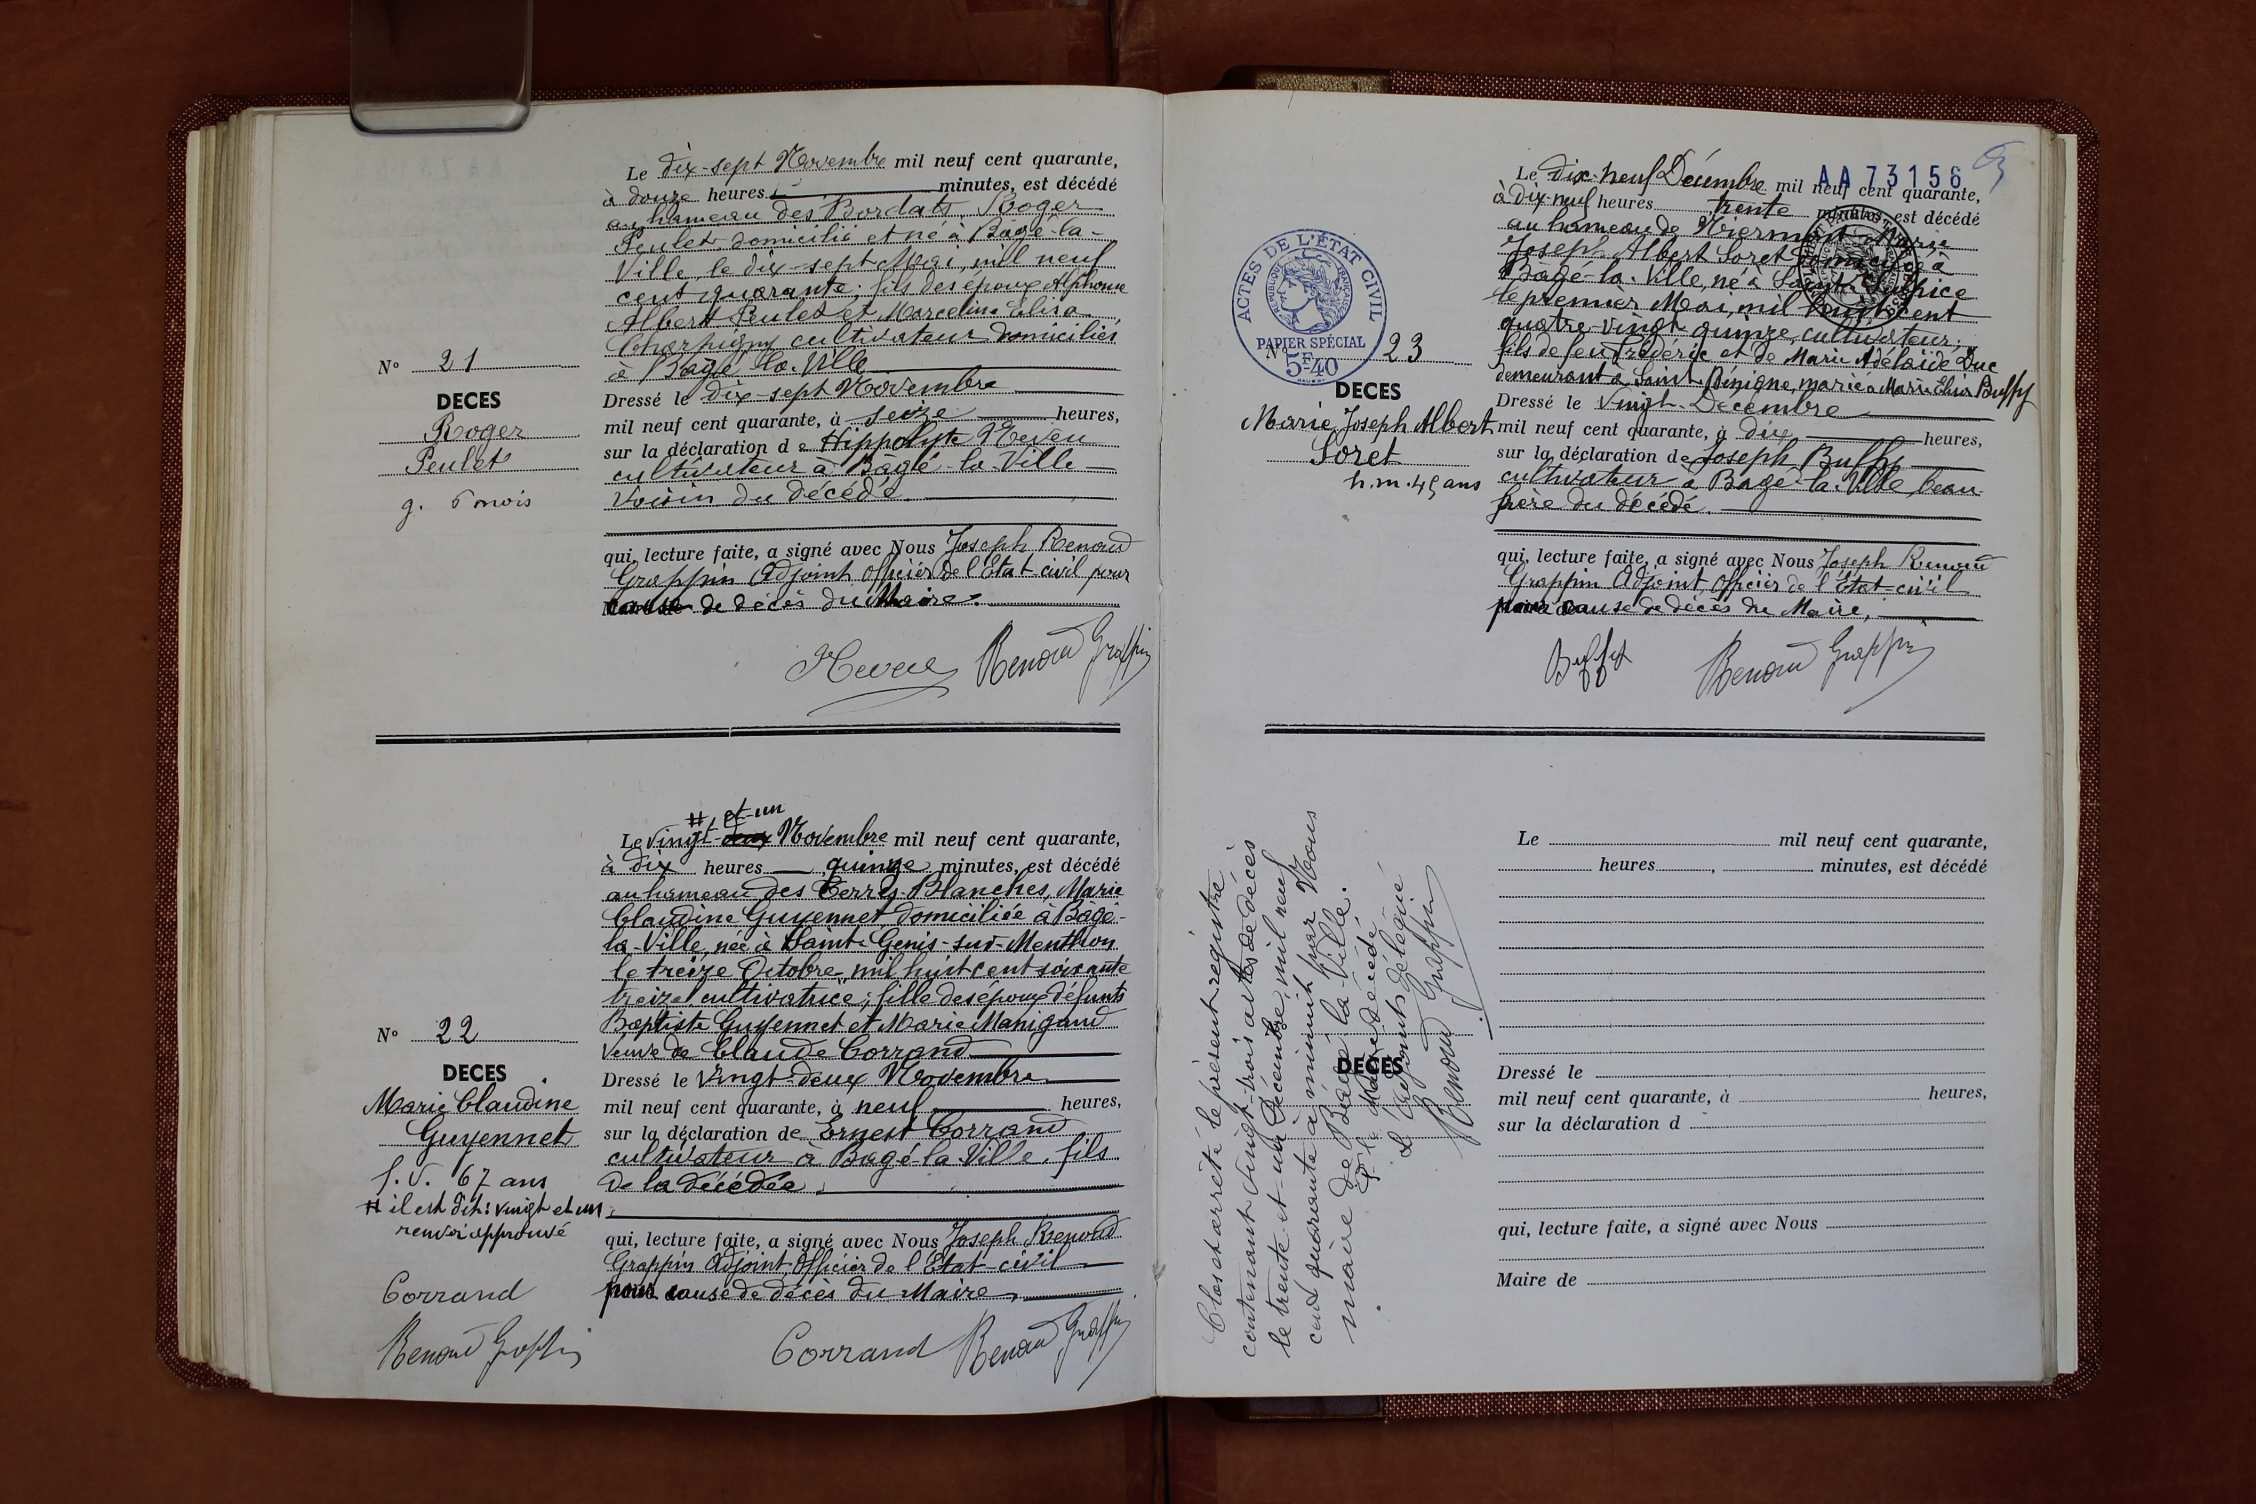 Le dix-sept Novembre mil neuf cent quarante,
à douze heures minutes, est décédé
au hameau des Bordats, Roger
Peulet domicilié et né à Bâgé-la-
Ville, le dix-sept Mai, mil neuf
cent quarante; fils des époux Alphonse
Albert Peulet et Marceline Elisa
Charpigny cultivateur domiciliés
à Bâgé la Ville
N° 21
DECES
Roger
Peulet
g. 6 mois
Dressé le dix-sept Novembre
mil neuf cent quarante, à seize heures,
sur la déclaration de Hippolyte Neveu
cultivateur à Bâgé-la-Ville
voisin du décédé
qui, lecture faite, a signé avec Nous Joseph Renoud
Grappin Adjoint Officier de l'Etat-civil pour
cause de décès du Maire.
Neveu Renoud Grappin
# et-un
Le vingt-deux Novembre mil neuf cent quarante,
à dix heures quinze minutes, est décédé
au hameau des Terres-Blanches, Marie
Claudine Guyennet domiciliée à Bâgé-
la-Ville, née à Saint-Genis-sur-Menthon
le treize Octobre mil huit cent soixante
treize, cultivatrice; fille des époux défunts
Baptiste Guyennet et Marie Manigand
veuve de Claude Corrand
N° 22
DECES
Marie Claudine
Guyennet
f. v. 67 ans
# il est dit: vingt et un
renvoi approuvé
Corrand
Renoud Grappin
Dressé le vingt-deux Novembre
mil neuf cent quarante, à neuf heures,
sur la déclaration de Ernest Corrand
cultivateur à Bagé-la-Ville, fils
de la décédée
qui, lecture faite, a signé avec Nous Joseph Renoud
Grappin Adjoint Officier de l'Etat-civil
pour cause de décès du Maire,
Corrand Renoud Grappin
AA 73156
Le dix-neuf Décembre mil neuf cent quarante,
à dix-neuf heures trente minutes, est décédé
au hameau de Marie
Joseph Albert Soret domicilié à
Bâgé-la-Ville, né à Saint-Sulpice
le premier Mai, mil huit cent
quatre-vingt quinze, cultivateur;
fils de feu Frédéric et de Marie Adélaïde Duc
demeurant à Saint-Bénigne, marié à Marie Elisa Buffy
ACTES DE L'ÉTAT CIVIL
RÉPUBLIQUE FRANÇAISE
PAPIER SPÉCIAL
5F40
N° 23
DECES
Marie Joseph Albert
Soret
h. m. 45 ans
Dressé le vingt Décembre
mil neuf cent quarante, à dix heures,
sur la déclaration de Joseph Buffy
cultivateur à Bâgé-la-Ville, beau
frère du décédé.
qui, lecture faite, a signé avec Nous Joseph Renoud
Grappin Adjoint, Officier de l'Etat-civil
pour cause de décès du Maire,
Buffy Renoud Grappin
Clos et arrêté le présent registre
contenant vingt-trois actes de décès
le trente-et-un Décembre, mil neuf
cent quarante à minuit par Nous
maire de Bâgé la Ville.
P. le Maire décédé
L'Adjoint délégué
Renoud Grappin
Le mil neuf cent quarante,
heures, minutes, est décédé
DECES
Dressé le
mil neuf cent quarante, à heures,
sur la déclaration d
qui, lecture faite, a signé avec Nous
Maire de